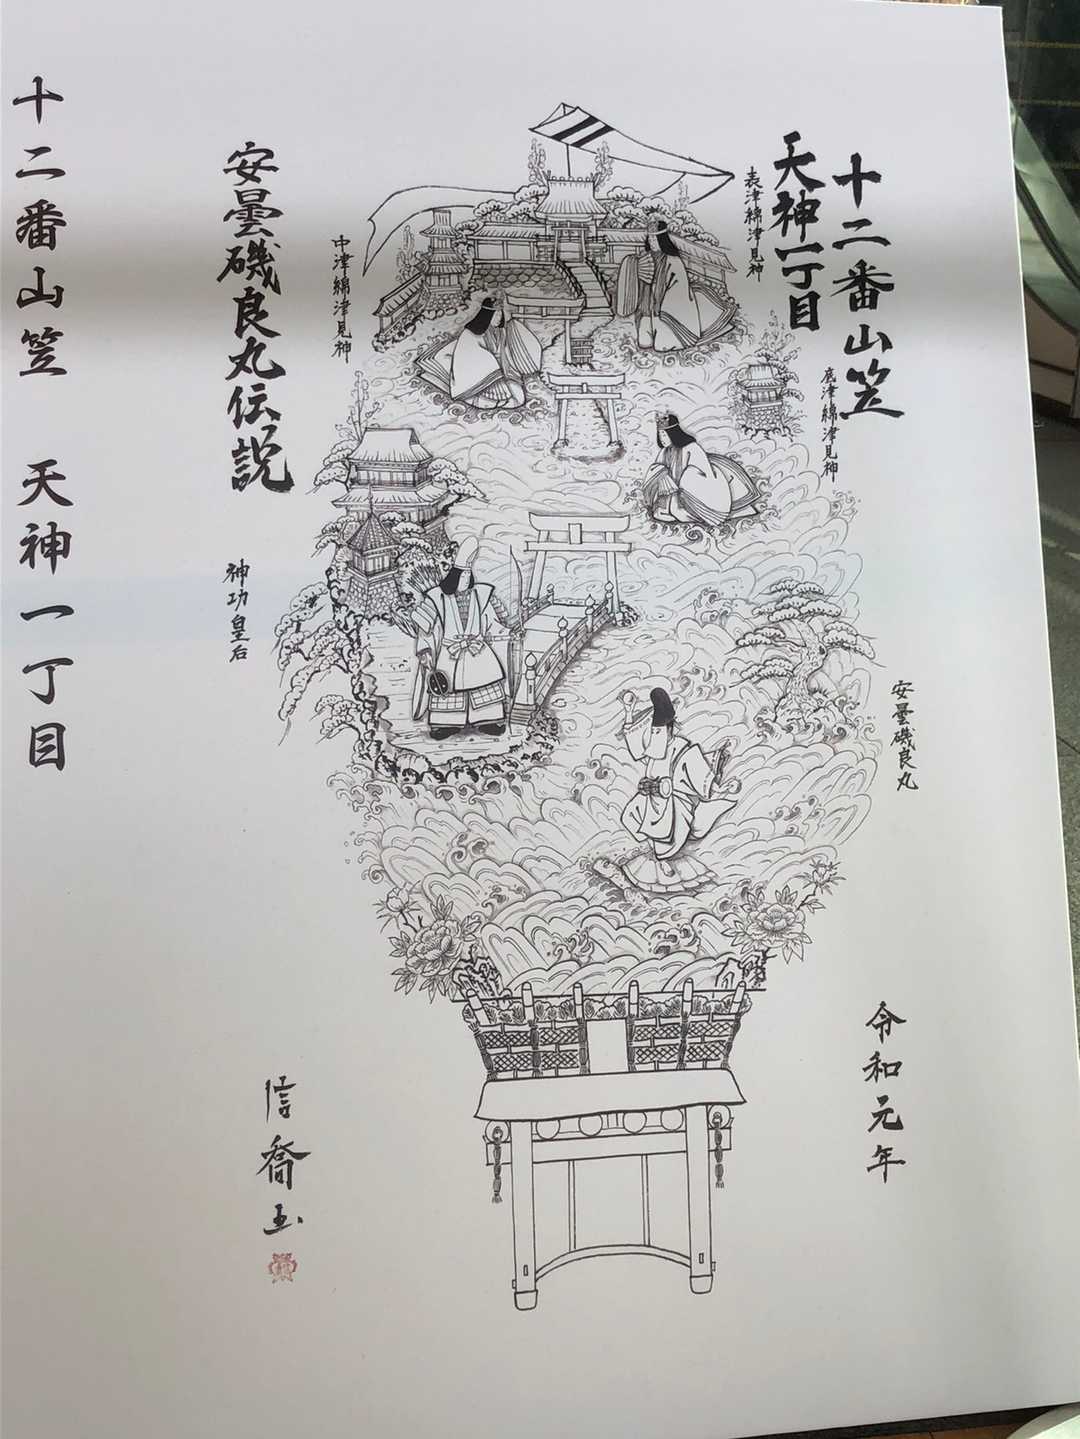 十二番山笠
天神一丁目
表津綿津見神
底津綿津見神
中津綿津見神
安曇磯良丸伝説
神功皇后
安曇磯良丸
令和元年
信喬
十二番山笠 天神一丁目